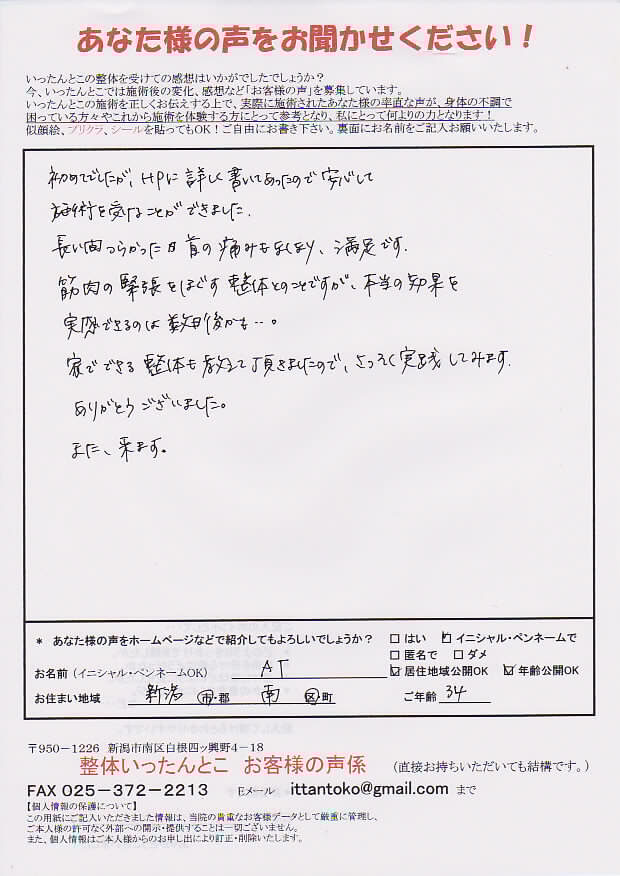 あなた様の声をお聞かせください！
いったんとこの整体を受けての感想はいかがでしたでしょうか？
今、いったんとこでは施術後の変化、感想など「お客様の声」を募集しています。
いったんとこの施術を正しくお伝えする上で、実際に施術されたあなた様の率直な声が、身体の不調で
困っている方々やこれから施術を体験する方にとって参考となり、私にとって何よりの力となります！
似顔絵、プリクラ、シールを貼ってもOK！ご自由にお書き下さい。裏面にお名前をご記入お願いいたします。
初めてでしたが、HPに詳しく書いてあったので安心して
施術を受けることができました。
長い間つらかった肩首の痛みもなくなり、満足です。
筋肉の緊張をほぐす整体とのことですが、本当の効果を
実感できるのは数日後かも…。
家でできる整体も教えて頂きましたので、さっそく実践してみます。
ありがとうございました。
また、来ます。
* あなた様の声をホームページなどで紹介してもよろしいでしょうか？ □ はい ☑ イニシャル・ペンネームで
□ 匿名で □ ダメ
お名前（イニシャル・ペンネームOK） AT ☑ 居住地域公開OK ☑ 年齢公開OK
お住まい地域 新潟 市・郡 南 区町 ご年齢 34
〒950－1226 新潟市南区白根四ッ興野4－18
整体いったんとこ お客様の声係 （直接お持ちいただいても結構です。）
FAX 025－372－2213 Eメール ittantoko@gmail.com まで
【個人情報の保護について】
この用紙にご記入いただきました情報は、当院の貴重なお客様データとして厳重に管理し、
ご本人様の許可なく外部への開示・提供することは一切ございません。
また、個人情報はご本人様からのお申し出により訂正・削除いたします。